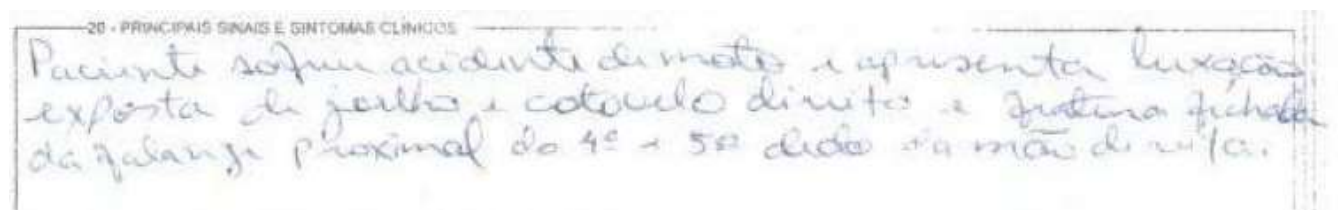 20 - PRINCIPAIS SINAIS E SINTOMAS CLÍNICOS
Paciente sofreu acidente de moto e apresenta luxação
exposta de joelho e cotovelo direito e fratura fechada
da falange proximal do 4º e 5º dedo da mão direita.